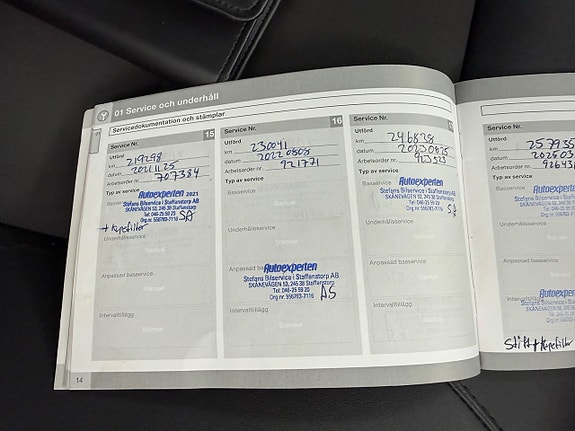 01 Service och underhåll
Servicedokumentation och stämplar
15
Service Nr.
Utförd
km 219298
datum 20211125
Arbetsorder nr. 707384
Typ av service
Autoexperten 2021
Stefans Bilservice i Staffanstorp AB
SKANEVÄGEN 53, 245 38 Staffanstorp
Tel: 046-25 59 20
Org nr. 556783-7116 SA
Underhållsservice
Stämpel
Anpassad basservice
Stämpel
Intervalltillägg
Stämpel
16
Service Nr.
Utförd
km 230041
datum 20220808
Arbetsorder nr. 921771
Typ av service
Basservice
Stämpel
Underhållsservice
Stämpel
Anpassad basservice
Autoexperten
Stefans Bilservice i Staffanstorp AB
SKANEVÄGEN 53, 245 38 Staffanstorp
Tel: 046-25 59 20
Org nr. 556783-7116 AS
Intervalltillägg
Stämpel
Service Nr.
Utförd
km 246838
datum 20230825
Arbetsorder nr. 923523
Typ av service
Basservice
Autoexperten
Stefans Bilservice i Staffanstorp AB
SKANEVÄGEN 53, 245 38 Staffanstorp
Tel: 046-25 59 20
Org nr. 556783-7116
Underhållsservice
Stämpel
Anpassad basservice
Stämpel
Intervalltillägg
Stämpel
14
Service Nr.
Utförd
km 257935
datum
Arbetsorder nr.
Typ av service
Autoexperten
Stefans Bilservice i
Tel: 046-25
Org nr. 556783
Underhållsservice
Anpassad basservice
Autoexperten
Stefans Bilservice i Staffanstorp
Intervalltillägg